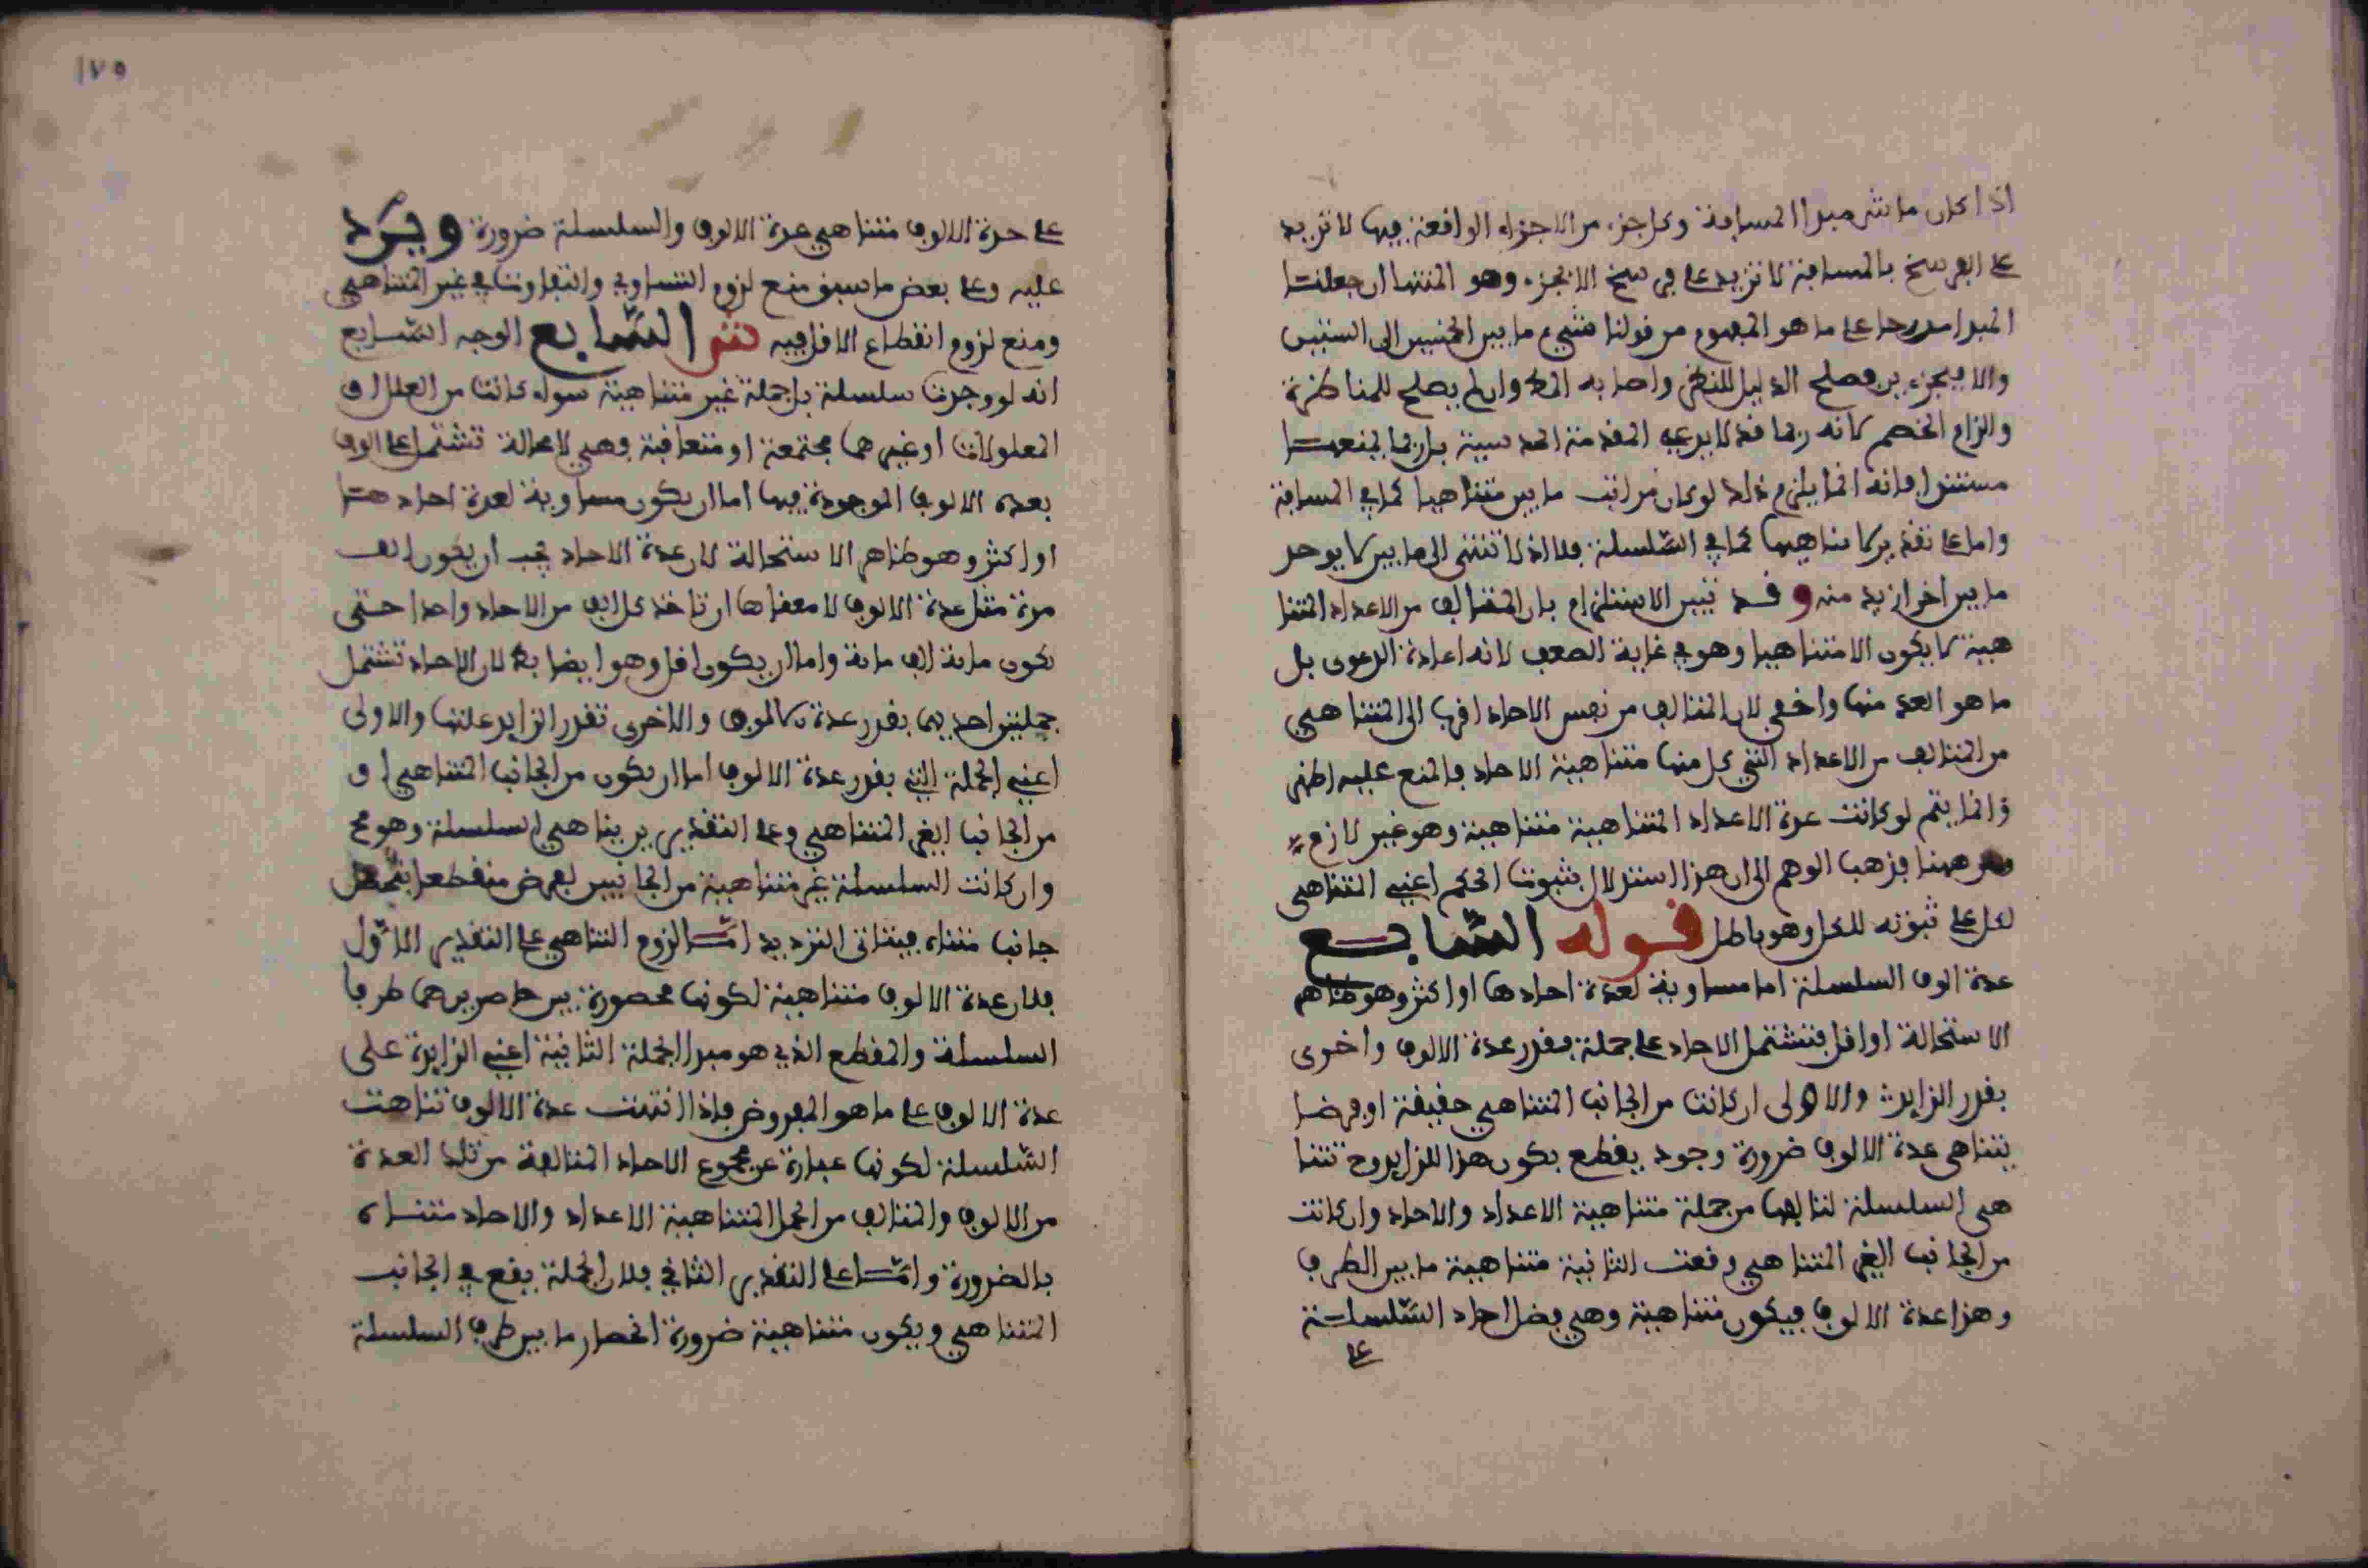 اذا كان ما بين مبدا المسافة وكل جزء من الاجزاء الواقعة فيها لا تزيد
على الفرسخ فالمسافة لا تزيد على فرسخ الا بجزء وهو المنتها ان جعلت
المبدا مدرجا على ما هو المفهوم من قولنا سني ما بين الخمسين الى الستين
والا فبجزءين فصلح الدليل للنظر واصابه المط وان لم يصلح للمناظرة
والزام الخصم لانه ربما قد لا يرعه المقدمة الحدسية بل ربما يمنعها
مستندا بانه انما يلزم ذلك لو كان مراتب ما بين متناهيا كما في المسافة
واما على تقدير لا تناهيها كما في السلسلة فلا اذ لا تنتهي الى ما بين لا يوجد
ما بين اخر ازيد منه وقد تبين الاستلزام بان المتالف من الاعداد المتنا
هية لا يكون الا متناهيا وهو في غاية الضعف لانه اعادة الدعوى بل
ما هو ابعد منها واخفى لان المتالف من نفس الاحاد اقرب الى المتناهي
من المتالف من الاعداد التي كل منها متناهية الاحاد فالمنع عليه اظهر
وانما يتم لو كانت عدة الاعداد المتناهية متناهية وهو غير لازم
ومن ههنا يذهب الوهم الى ان هذا استدلال بثبوت الحكم اعني المتناهي
لكل على ثبوته للكل وهو باطل قوله السابع
عدة الوف السلسلة اما مساوية لعدة احادها او اكثر وهو ظاهر
الاستحالة او اقل فتشتمل الاحاد على جملة بقدر عدة الالوف واخرى
بقدر الزايد والاولى ان كانت من الجانب المتناهي حقيقة او فرضا
يتناهى عدة الالوف ضرورة وجود مقطع يكون هذا للزايد وح تتنا
هى السلسلة لتالفها من جملة متناهية الاعداد والاحاد وان كانت
من الجانب الغير المتناهي وقعت الثانية متناهية ما بين الطرف
وهذا عدة الالوف فيكون متناهية وهي فضل احاد السلسلة
على
١٧٩
على حدة الالوف متناهي عدة الالوف والسلسلة ضرورة ويرد
عليه وعلى بعض ما سبق منع لزوم التساوي والتفاوت في غير المتناهي
ومنع لزوم انقطاع الاقل فيه ش السابع الوجه السابع
انه لو وجدت سلسلة بل جملة غير متناهية سواء كانت من العلل او
المعلولات او غيرهما مجتمعة او متعاقبة فهي لا محالة تشتمل على الوف
بعدة الالوف الموجودة فيها اما ان يكون مساوية لعدة احادها
او اكثر وهو ظاهر الاستحالة لان عدة الاحاد يجب ان يكون الف
مرة مثل عدة الالوف لا معناها ان تاخذ كل الف من الاحاد واحدا حتى
يكون ماية الف ماية واما ان يكون اقل وهو ايضا بط لان الاحاد تشتمل
جملتين احديهما بقدر عدة الالوف والاخرى تقدر الزايد عليها والاولى
اعني الجملة التي بقدر عدة الالوف اما ان يكون من الجانب المتناهي او
من الجانب الغير المتناهي وعلى التقديرين يتناهي السلسلة وهو مح
وان كانت السلسلة غير متناهية من الجانبين نفرض مقطعا فيحصل
جانب متناه فيتاتى الترديد اما لزوم التناهي على التقدير الاول
فلان عدة الالوف متناهية لكونها محصورة بين حاصرين هما طرف
السلسلة والمقطع الذي هو مبدا الجملة الثانية اعني الزايدة على
عدة الالوف على ما هو المفروض فاذا انتهت عدة الالوف تناهت
السلسلة لكونها عبارة عن مجموع الاحاد المتالفة من تلك العدة
من الالوف والمتالف من الجمل المتناهية الاعداد والاحاد متناه
بالضرورة واما على التقدير الثاني فلان الجملة يقع في الجانب
المتناهي ويكون متناهية ضرورة انحصار ما بين طرف السلسلة